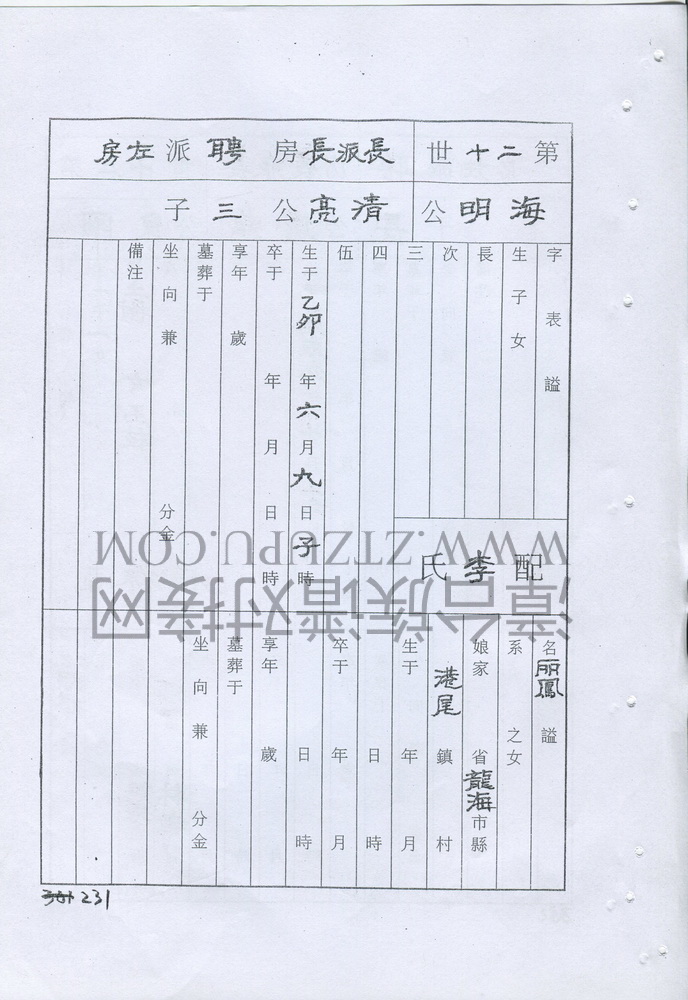 第二十世
長派長房聘派左房
海明公
清亮公三子
字表謚
生子女
長
次
三
四
伍
生于乙卯年六月九日子時
卒于年月日時
享年歲
墓葬于
坐向兼分金
備注
配李氏
名丽鳳謚
系之女
娘家省龍海市縣
港尾鎮村
生于年月
日時
卒于年月
日時
享年歲
墓葬于
坐向兼分金
231
漳台族谱对接网
WWW.ZTZUPU.COM